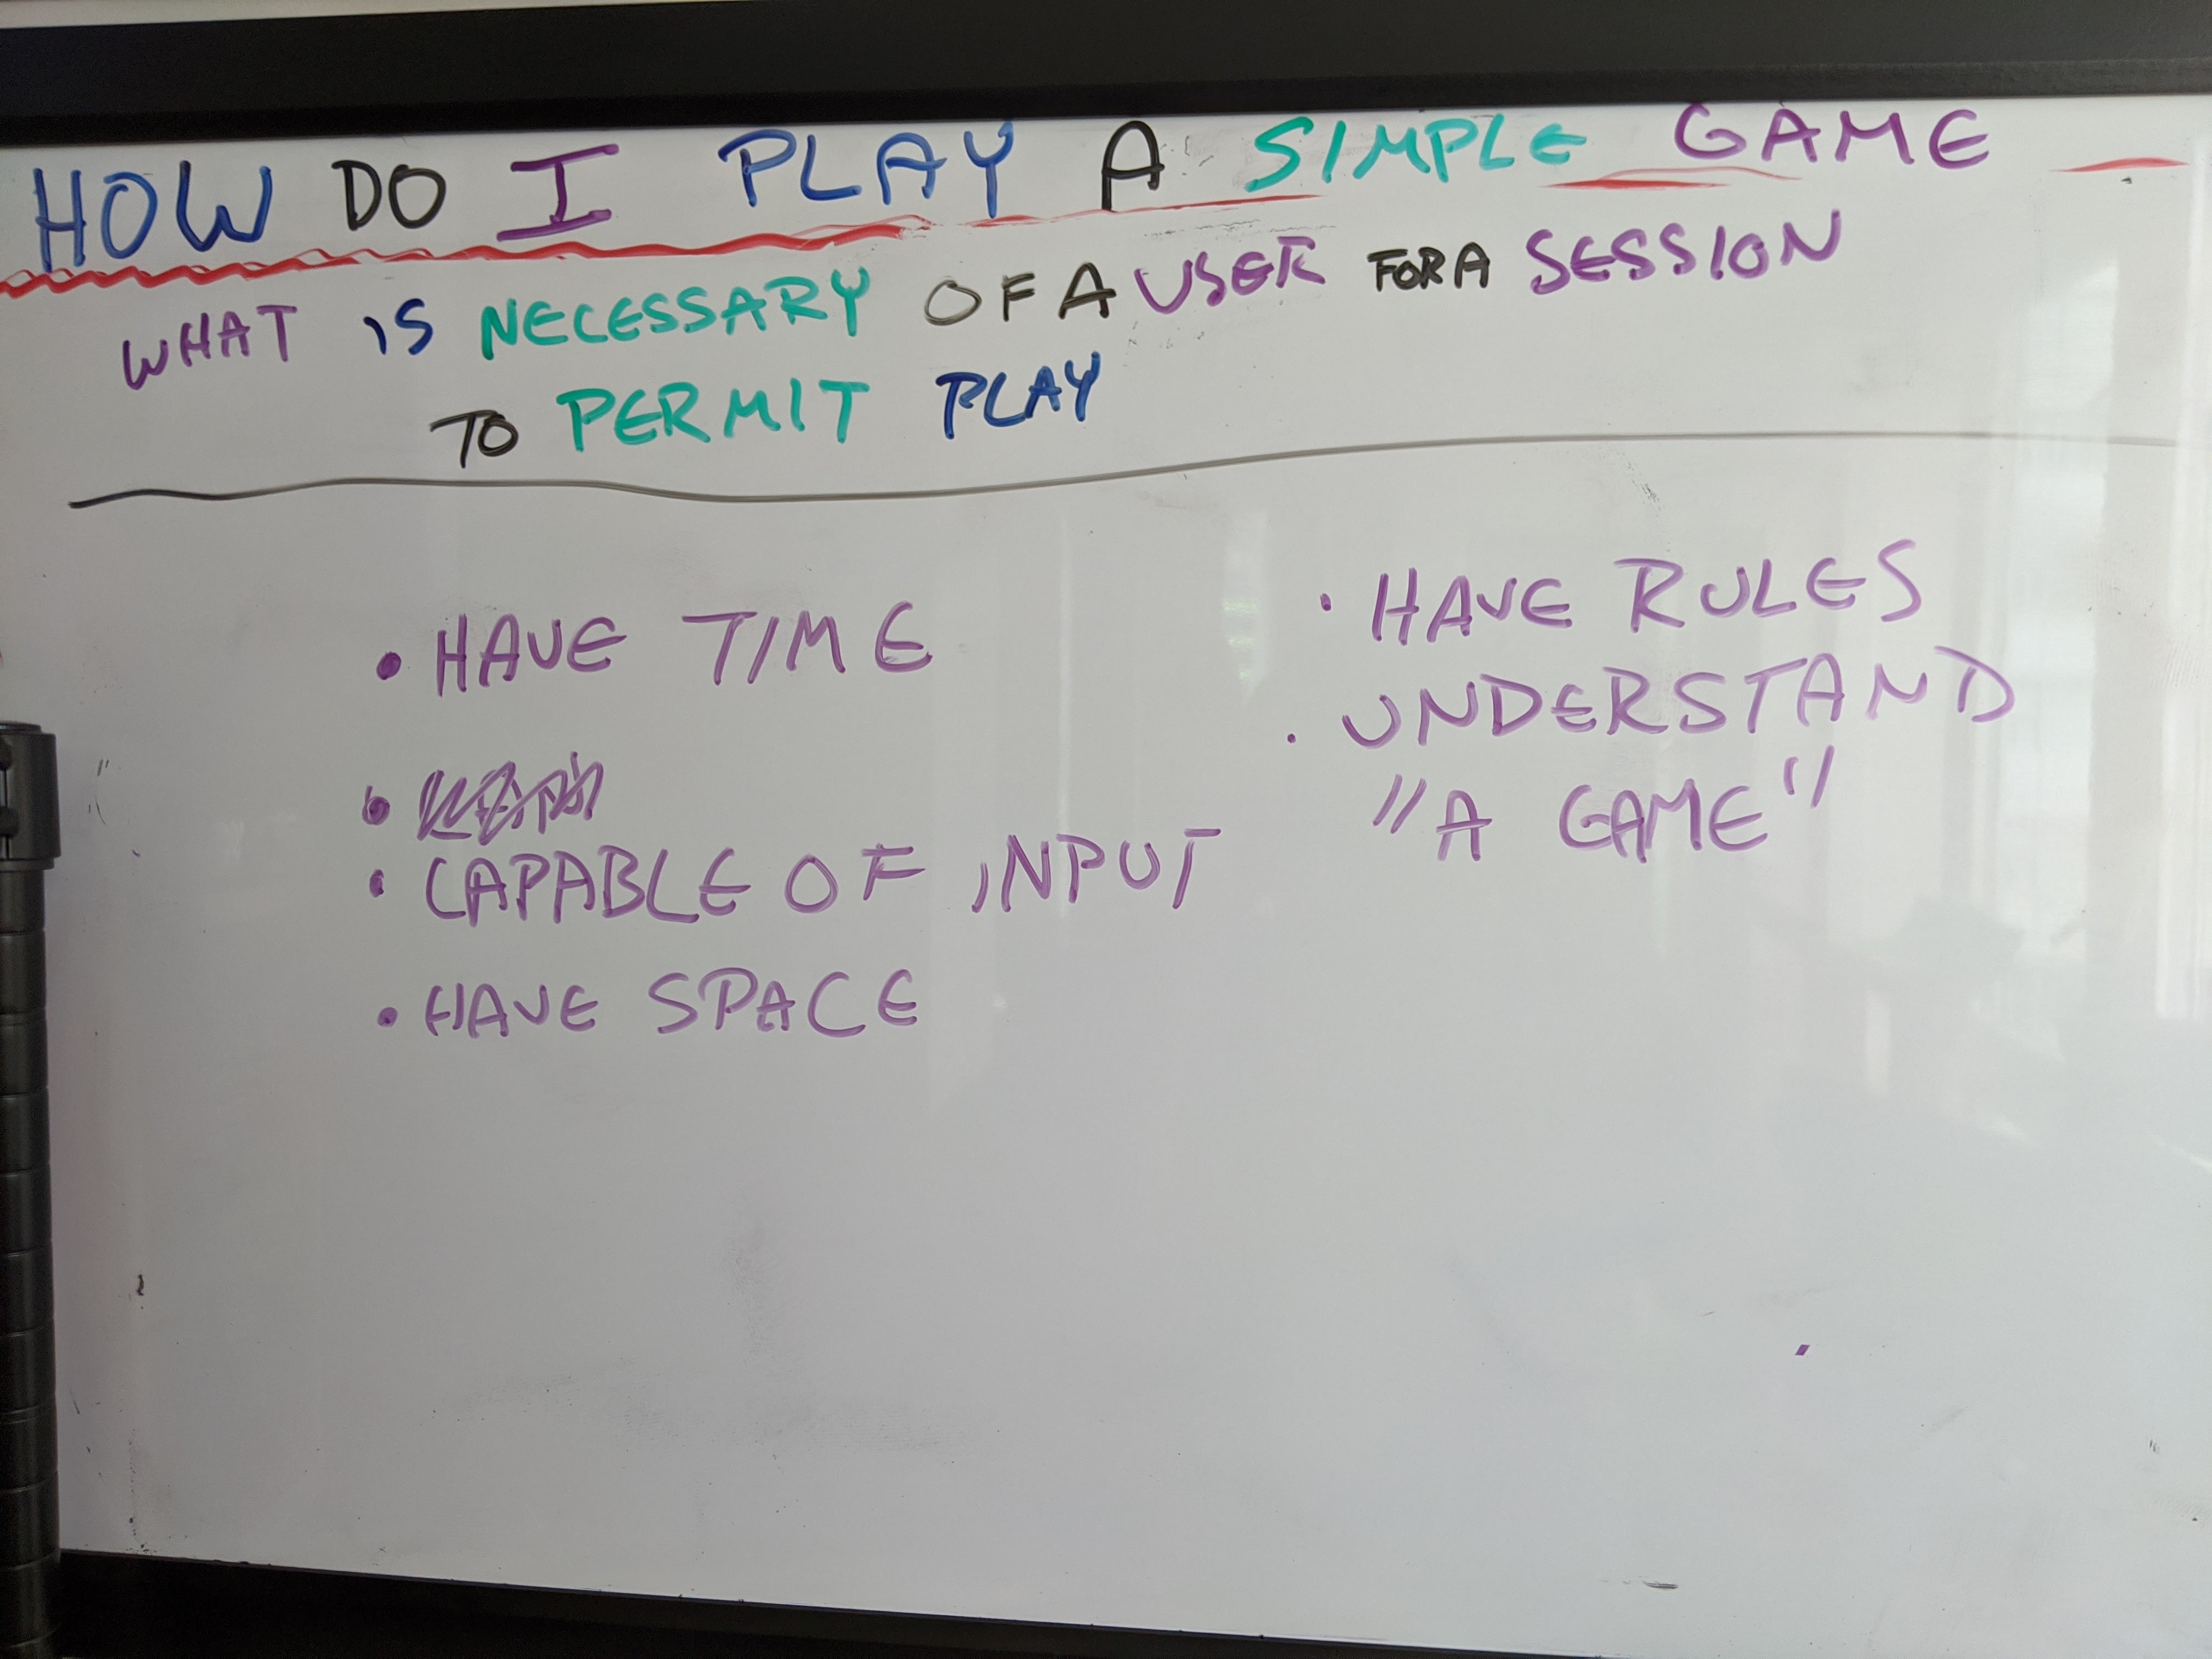 HOW DO I PLAY A SIMPLE GAME
WHAT IS NECESSARY OF A USER FOR A SESSION
TO PERMIT PLAY
• HAVE TIME
•
• CAPABLE OF INPUT
• HAVE SPACE
• HAVE RULES
• UNDERSTAND
"A GAME"